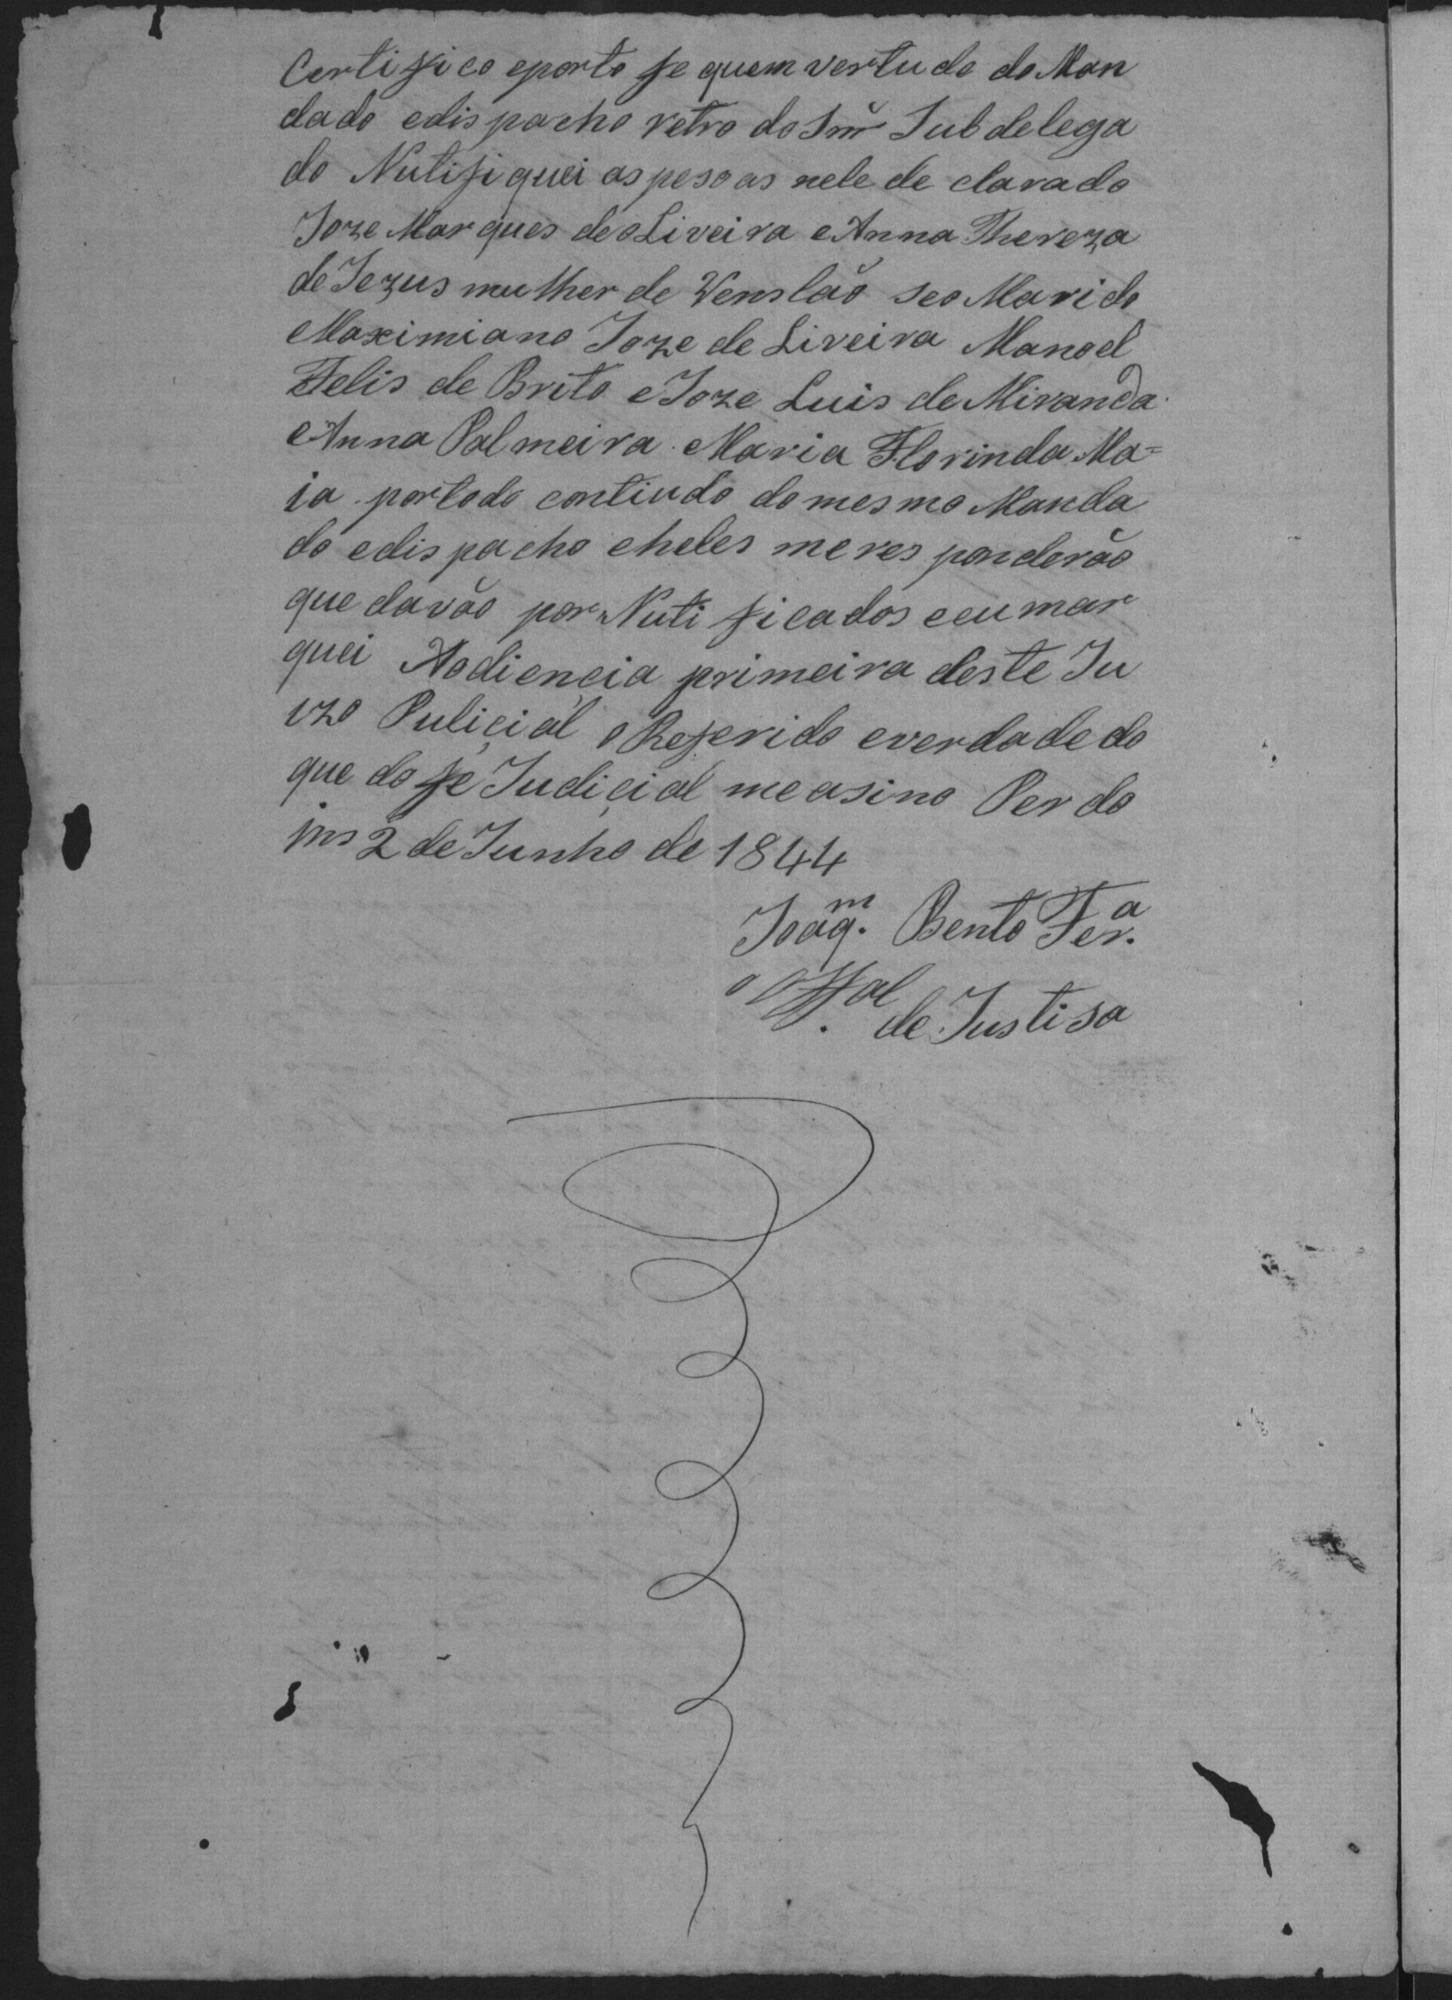 Certifico eporto fe quem vertude do Man
dado edispacho retro do Snr̃ Sub delega
do Nutifiquei as pesoas nele de clarado
Joze Marques deoLiveira e Anna Thereza
de Jezus mulher de Venslão seo Marido
e Maximiano Joze de Liveira Manoel
Felis de Brito e Joze Luis de Miranda
e Anna Palmeira e Maria Florinda Ma=
ia portodo contiudo do mesmo Manda
do edispacho eheles meres ponderão
que davão por Nutificados eeu mar
quei Aodiençia primeira deste Ju
izo Puliçial o Referido everdade do
que do fe Judiçial me asino Perdo
ins 2 de Junho de 1844
Joaqm. Bento Fera.
o Offal de Justisa